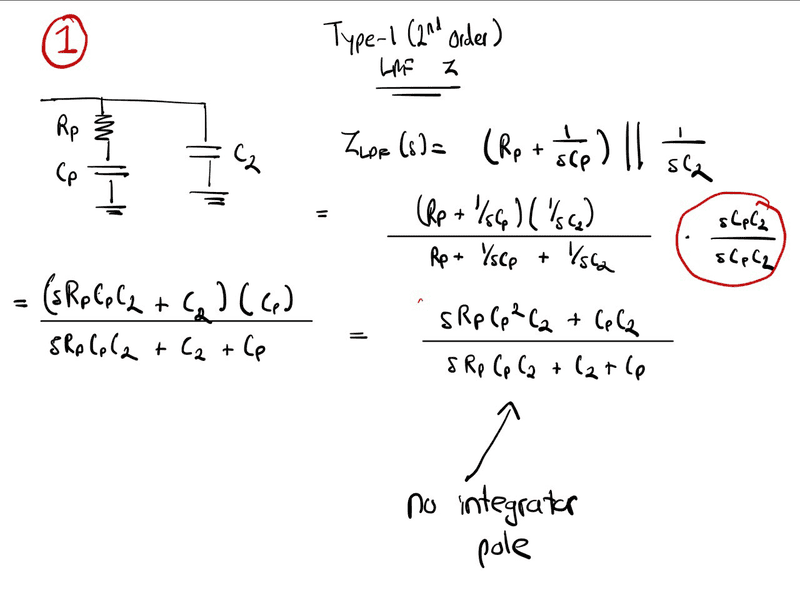 1
Type-1 (2nd Order)
LPF Z
Rp
Cp
C2
ZLPF(s) = (Rp + 1/sCp) || 1/sC2
= (Rp + 1/sCp)(1/sC2) / Rp + 1/sCp + 1/sC2 · sCpC2 / sCpC2
= (sRpCpC2 + C2)(Cp) / sRpCpC2 + C2 + Cp = sRpCp²C2 + CpC2 / sRpCpC2 + C2 + Cp
no integrator
pole